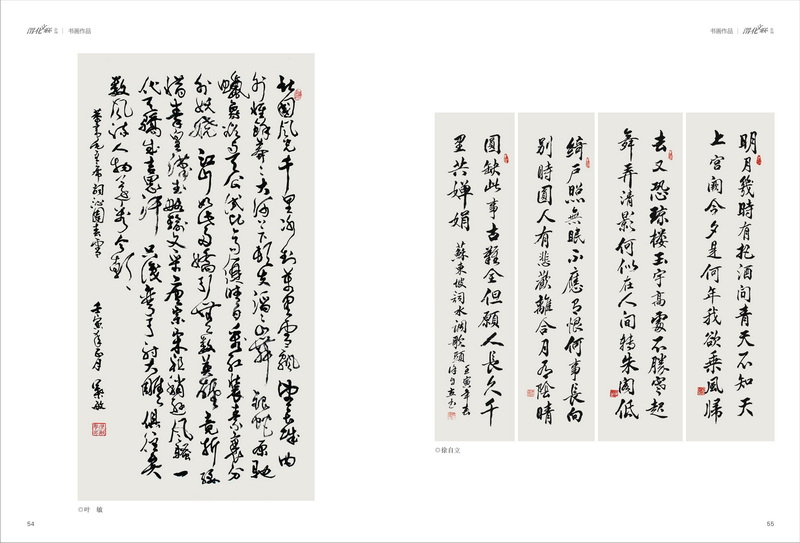 书画作品
书画作品
北國風光千里冰封萬里雪飘望長城内
外惟餘莽莽大河上下頓失滔滔山舞銀蛇原馳
蠟象欲与天公試比高須晴日看紅裝素裹分
外妖娆江山如此多嬌引無数英雄竞折腰
惜秦皇漢武略輸文采唐宗宋祖稍遜風騷一
代天驕成吉思汗只識弯弓射大雕俱往矣
数風流人物還看今朝
毛主席詞沁園春雪
壬寅年
◎叶 敏
54
明月幾時有把酒问青天不知天
上宫阙今夕是何年我欲乘風歸
去又恐琼楼玉宇高處不勝寒起
舞弄清影何似在人间轉朱阁低
綺户照無眠不應有恨何事長向
别時圆人有悲歡離合月有陰晴
圆缺此事古難全但願人長久千
里共婵娟 蘇東坡詞水调歌頭 壬寅年
◎徐自立
55